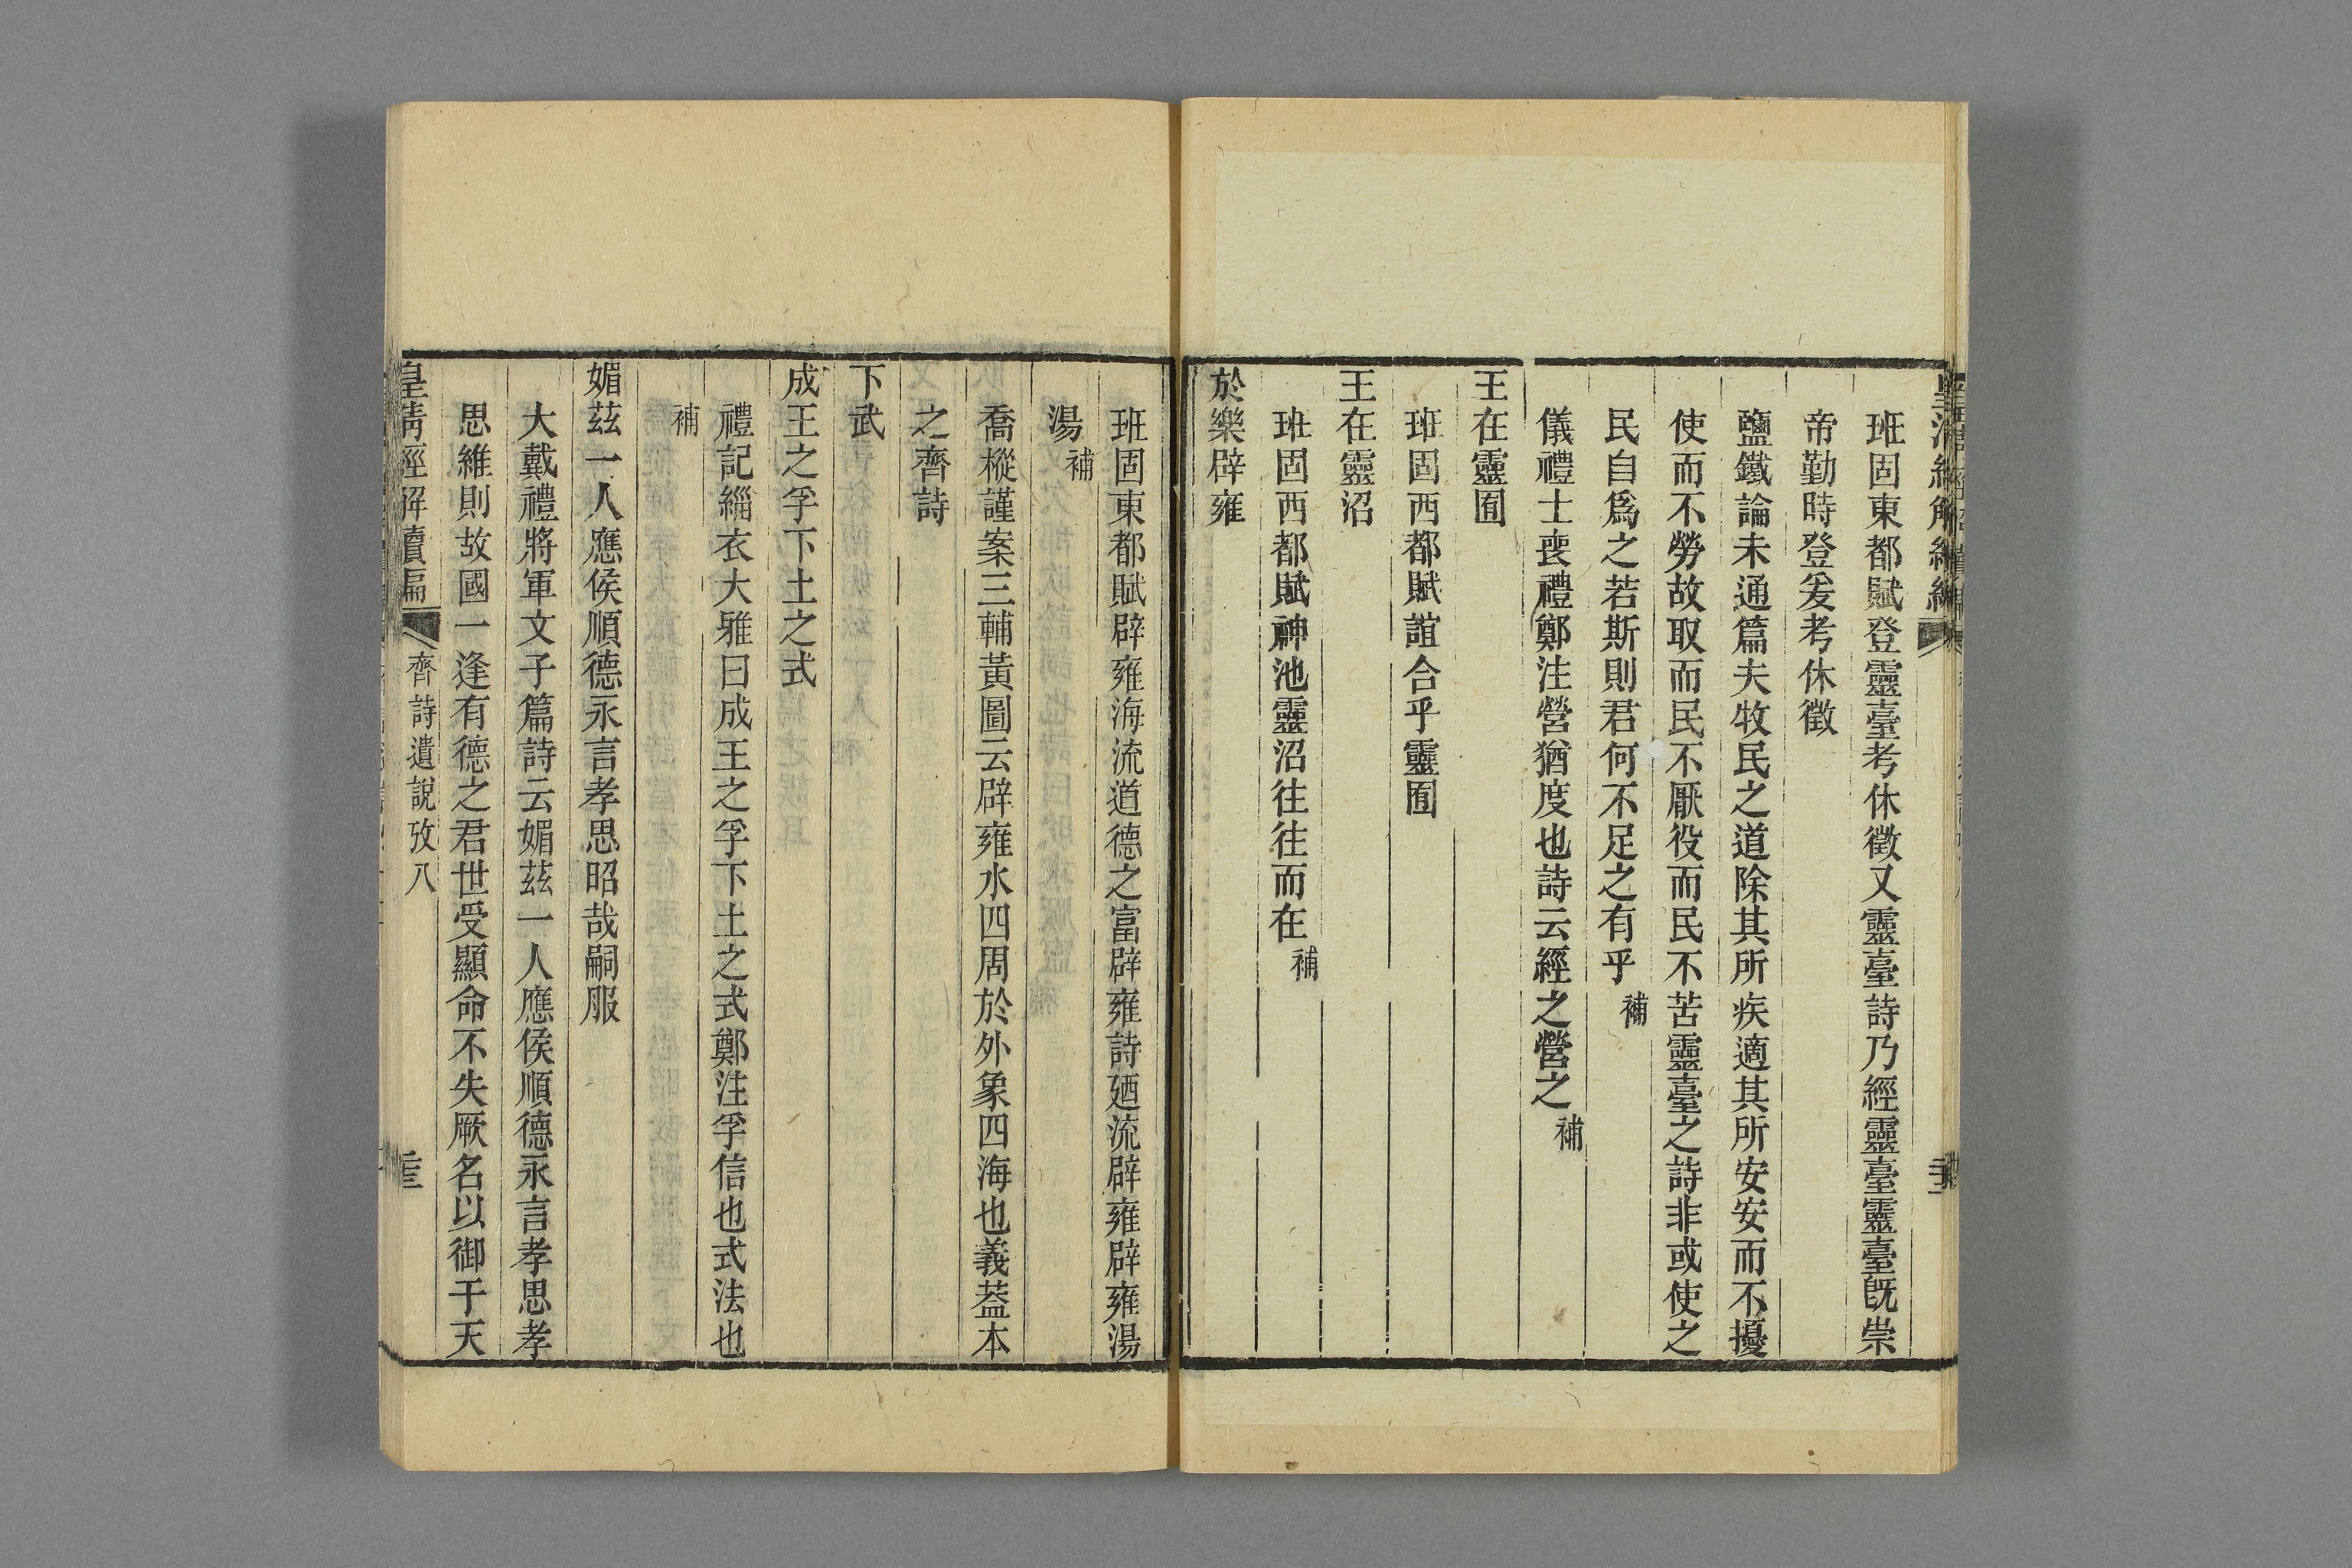 班固東都賦登靈臺考休徵又靈臺詩乃經靈臺靈臺旣崇
帝勤時登爰考休徵
鹽鐵論未通篇夫牧民之道除其所疾適其所安安而不擾
使而不勞故取而民不厭役而民不苦靈臺之詩非或使之
民自爲之若斯則君何不足之有乎 補
儀禮士喪禮鄭注營猶度也詩云經之營之 補
王在靈囿
班固西都賦誼合乎靈囿
王在靈沼
班固西都賦神池靈沼往往而在 補
於樂辟雍
班固東都賦辟雍海流道德之富辟雍詩廼流辟雍辟雍湯
湯 補
喬樅謹案三輔黃圖云辟雍水四周於外象四海也義葢本
之齊詩
下武
成王之孚下土之式
禮記緇衣大雅曰成王之孚下土之式鄭注孚信也式法也
補
媚茲一人應侯順德永言孝思昭哉嗣服
大戴禮將軍文子篇詩云媚茲一人應侯順德永言孝思孝
思維則故國一逢有德之君世受顯命不失厥名以御于天
皇清經解續編 齊詩遺說攷八